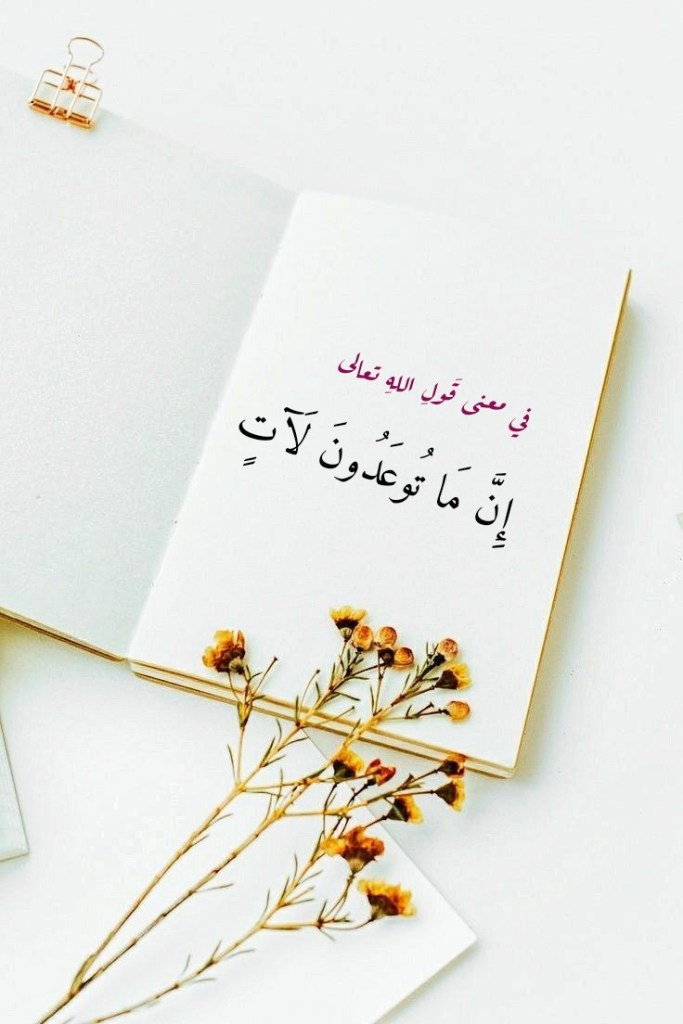 في معنى قَولِ اللهِ تعالى
إِنَّ مَا تُوعَدُونَ لَآتٍ